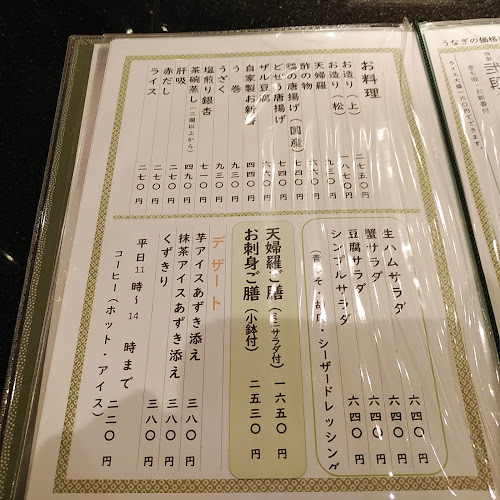 うなぎの価格
お料理
お造り（上） 二七五〇円
お造り（松） 一八七〇円
天婦羅 九三〇円
酢の物 六六〇円
鶏の唐揚げ（国産） 七四〇円
どぜう唐揚げ 七四〇円
ザル豆腐 六六〇円
自家製お新香 四四〇円
う巻 九三〇円
うざく 九三〇円
塩煎り銀杏 七一〇円
茶碗蒸し（二個以上から） 四九〇円
肝吸 二七〇円
赤だし 二七〇円
ライス 二七〇円
生ハムサラダ 六四〇円
蟹サラダ 六四〇円
豆腐サラダ 六四〇円
シンプルサラダ 六四〇円
（青じそ・胡麻・シーザードレッシング）
天婦羅ご膳（ミニサラダ付） 一六五〇円
お刺身ご膳（小鉢付） 二五三〇円
デザート
芋アイスあずき添え 三八〇円
抹茶アイスあずき添え 三八〇円
くずきり 三八〇円
平日11時～14時まで
コーヒー（ホット・アイス） 二二〇円